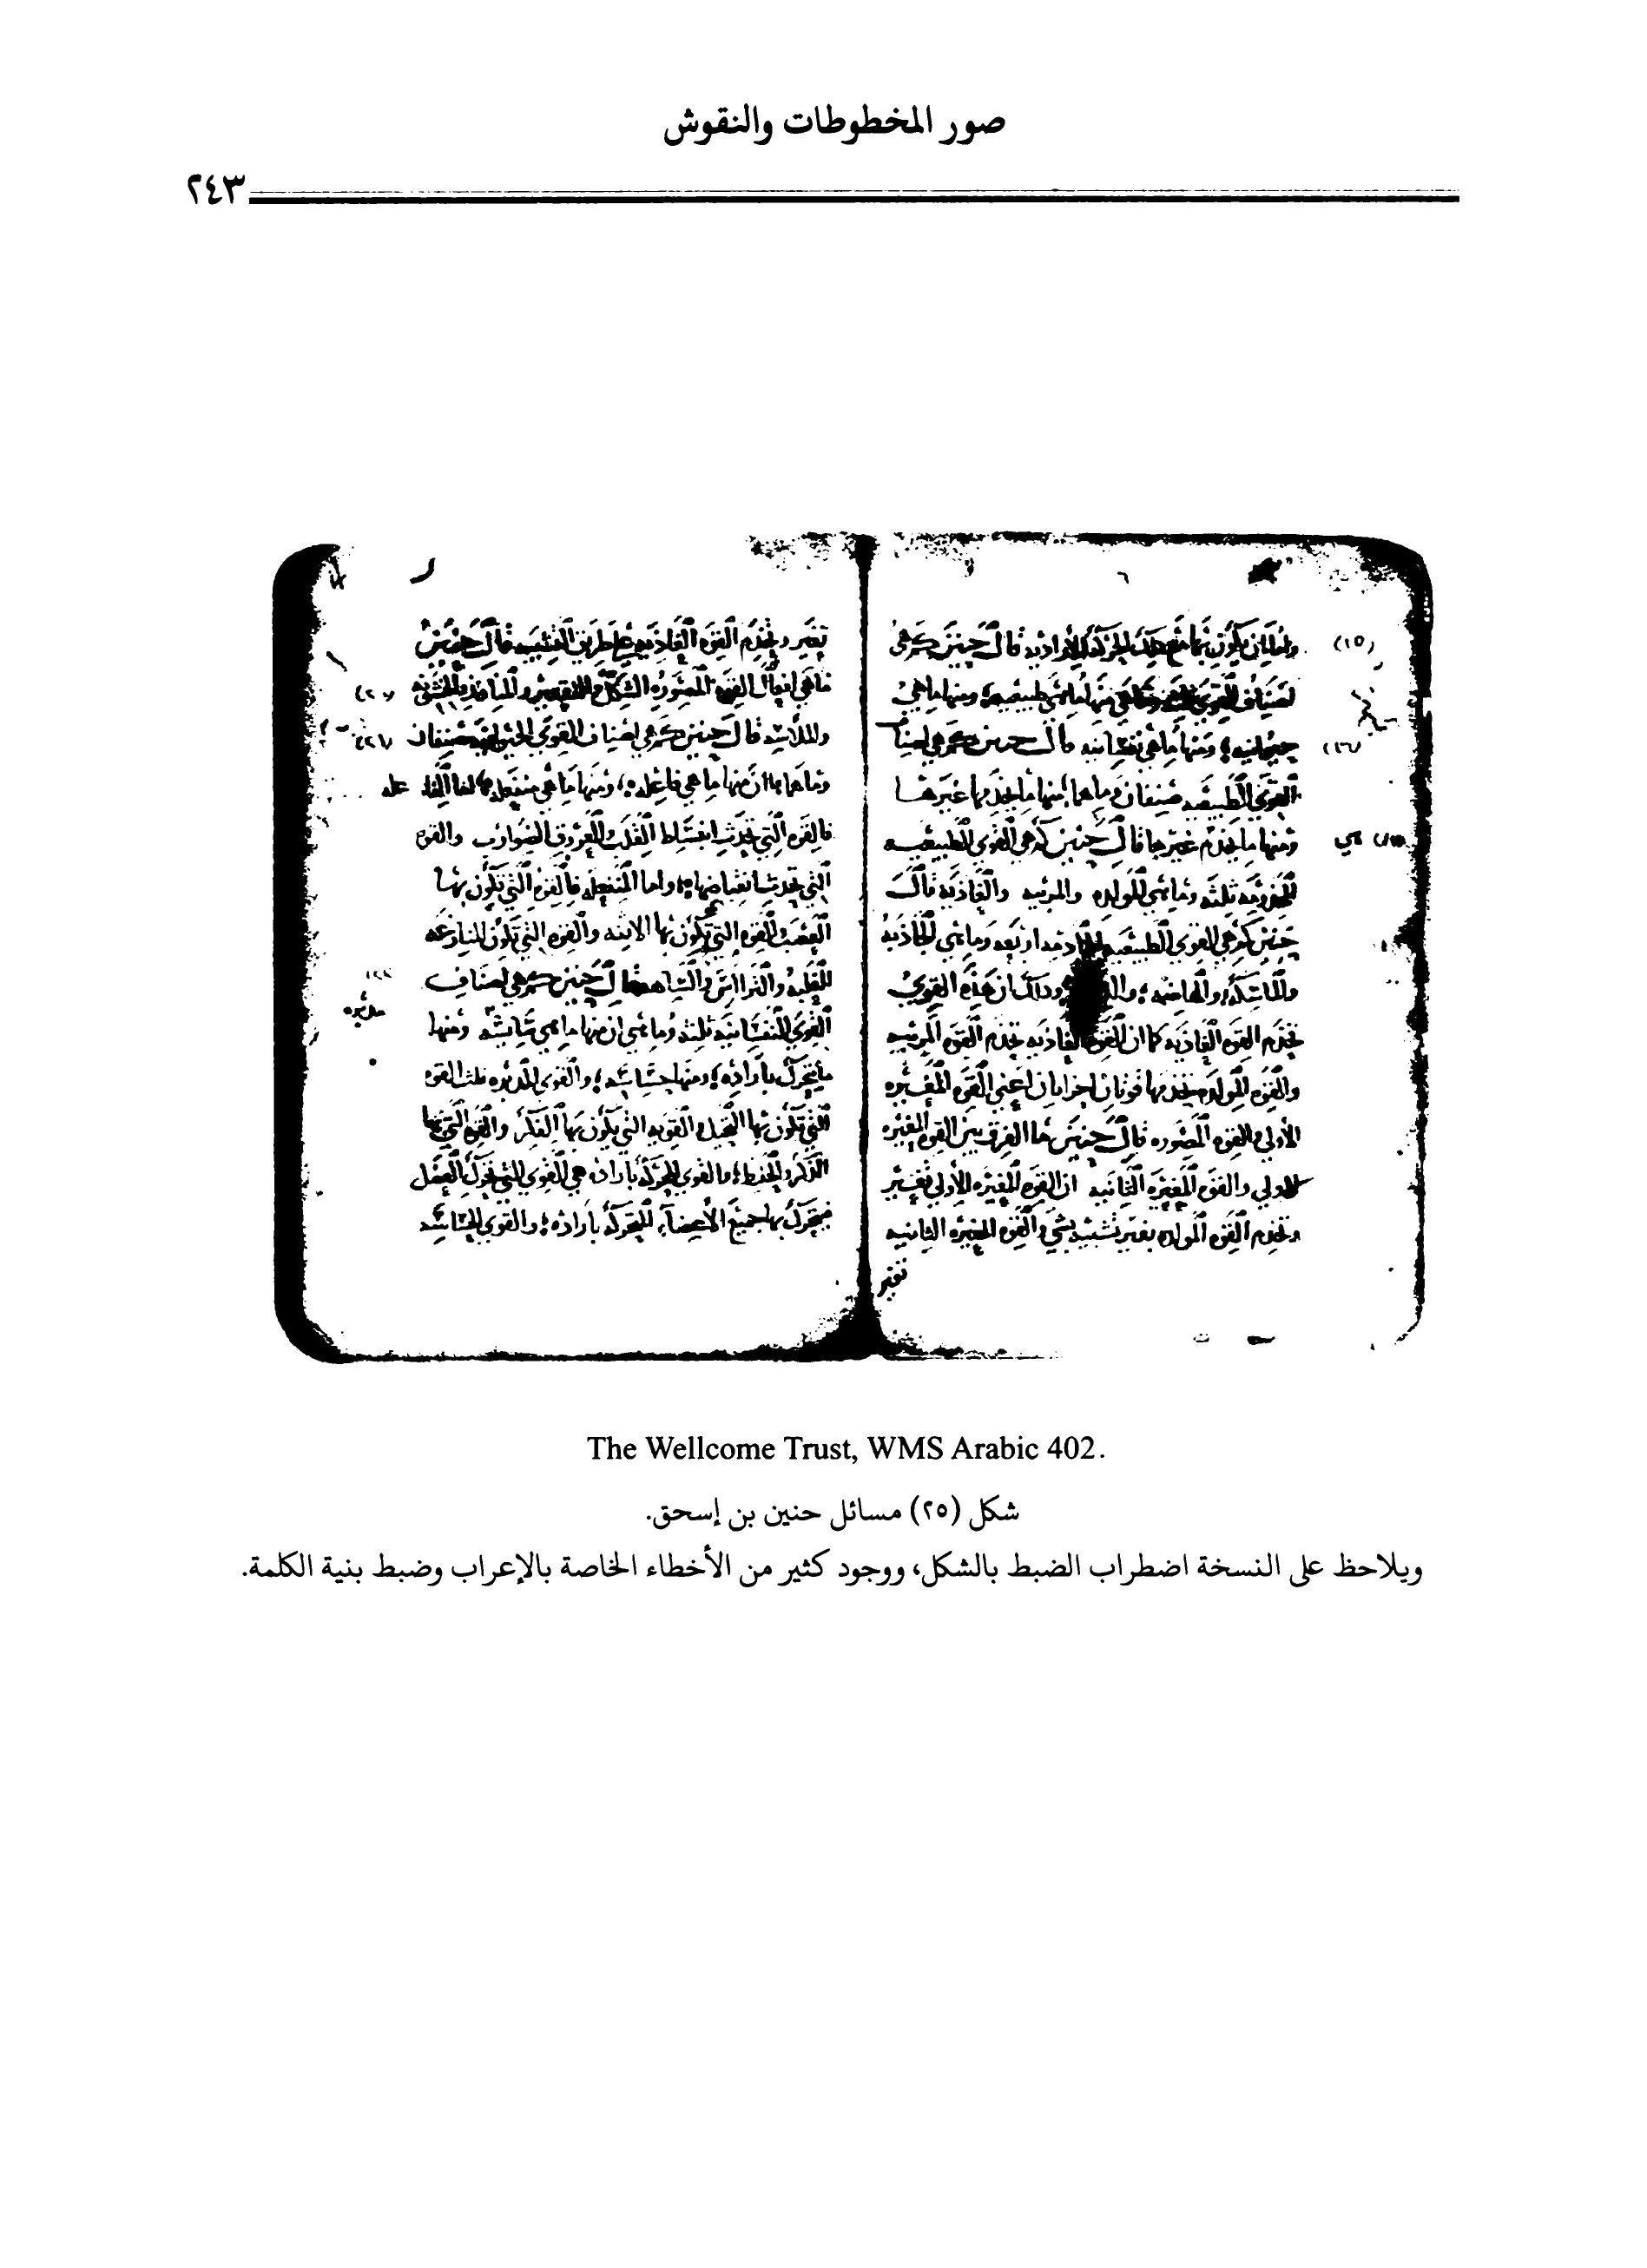 صور المخطوطات والنقوش
٢٤٣
واما ان يكون بها مع هذه الحركة الأرادية قال حنين كم هي
اصناف القوى منها ما هي طبيعية ومنها ما هي
حيوانية ومنها ما هي نفسانية قال حنين كم هي اصناف
القوى الطبيعية صنفان وما هما منها ما يخدمها غيرها
ومنها ما يخدم غيرها قال حنين كم هي القوى الطبيعية
المخدومة ثلثة وما هي المولدة والمربية والغاذية قال
حنين كم هي القوى الطبيعية الخادمة اربعة وما هي الجاذبة
والماسكة والهاضمة وذلك ان هذه القوى
تخدم القوة الغاذية كما ان القوة الغاذية تخدم القوة المربية
والقوة المولدة يخدمها قوتان اخرايان اعني القوة المغيره
الأولى والقوة المصوره قال حنين ما الفرق بين القوة المغيره
الاولى والقوة المغيره الثانية ان القوة المغيره الأولى تغير
وتخدم القوة المولده بغير تشبيه بشي والقوه المغيره الثانيه
تغير
تغير وتخدم القوه الغاذيه على طريق التشبيه قال حنين
ما هي افعال القوه المصوره الشكل والتقعير والمنافذ والخشونه
والملاسه قال حنين كم هي اصناف القوى الحيوانية صنفان
وما هما ان منها ما هي فاعله ومنها ما هي منفعله
فالقوه التي تحدث انبساط القلب والعروق الضوارب والقوه
التي تحدث انقباضها واما المنفعله فالقوه التي تكون بها
الغضب والقوه التي تكون بها الانفه والقوه التي تكون المنازعه
للغلبه قال حنين كم هي اصناف
القوى النفسانيه ثلثه وما هي ان منها ما هي ومنها
ما يتحرك بأراده ومنها حساسه والقوى المدبره ثلث القوه
التي تكون بها التخيل والقوه التي يكون بها الفكر والقوه التي بها
الذكر والحفظ والقوى المحركة بأراده هي القوى التي تحرك العضل
فيتحرك بها جميع الأعضاء المتحركه بأراده والقوى الحساسه
The Wellcome Trust, WMS Arabic 402.
شكل (٢٥) مسائل حنين بن إسحق.
ويلاحظ على النسخة اضطراب الضبط بالشكل، ووجود كثير من الأخطاء الخاصة بالإعراب وضبط بنية الكلمة.